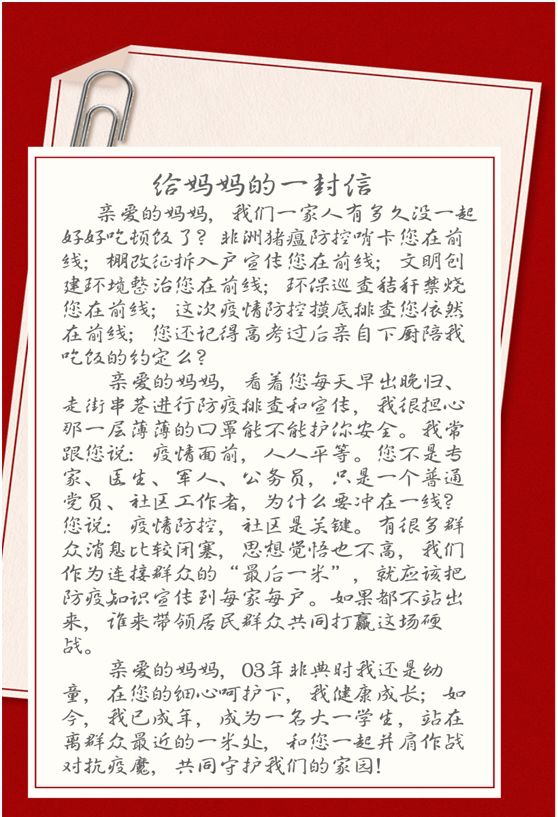 给妈妈的一封信
亲爱的妈妈，我们一家人有多久没一起
好好吃顿饭了？非洲猪瘟防控哨卡您在前
线；棚改征拆入户宣传您在前线；文明创
建环境整治您在前线；环保巡查秸秆禁烧
您在前线；这次疫情防控摸底排查您依然
在前线；您还记得高考过后亲自下厨陪我
吃饭的约定么？
亲爱的妈妈，看着您每天早出晚归、
走街串巷进行防疫排查和宣传，我很担心
那一层薄薄的口罩能不能护你安全。我常
跟您说：疫情面前，人人平等。您不是专
家、医生、军人、公务员，只是一个普通
党员、社区工作者，为什么要冲在一线？
您说：疫情防控，社区是关键。有很多群
众消息比较闭塞，思想觉悟也不高，我们
作为连接群众的“最后一米”，就应该把
防疫知识宣传到每家每户。如果都不站出
来，谁来带领居民群众共同打赢这场硬
战。
亲爱的妈妈，03年非典时我还是幼
童，在您的细心呵护下，我健康成长；如
今，我已成年，成为一名大一学生，站在
离群众最近的一米处，和您一起并肩作战
对抗疫魔，共同守护我们的家园！